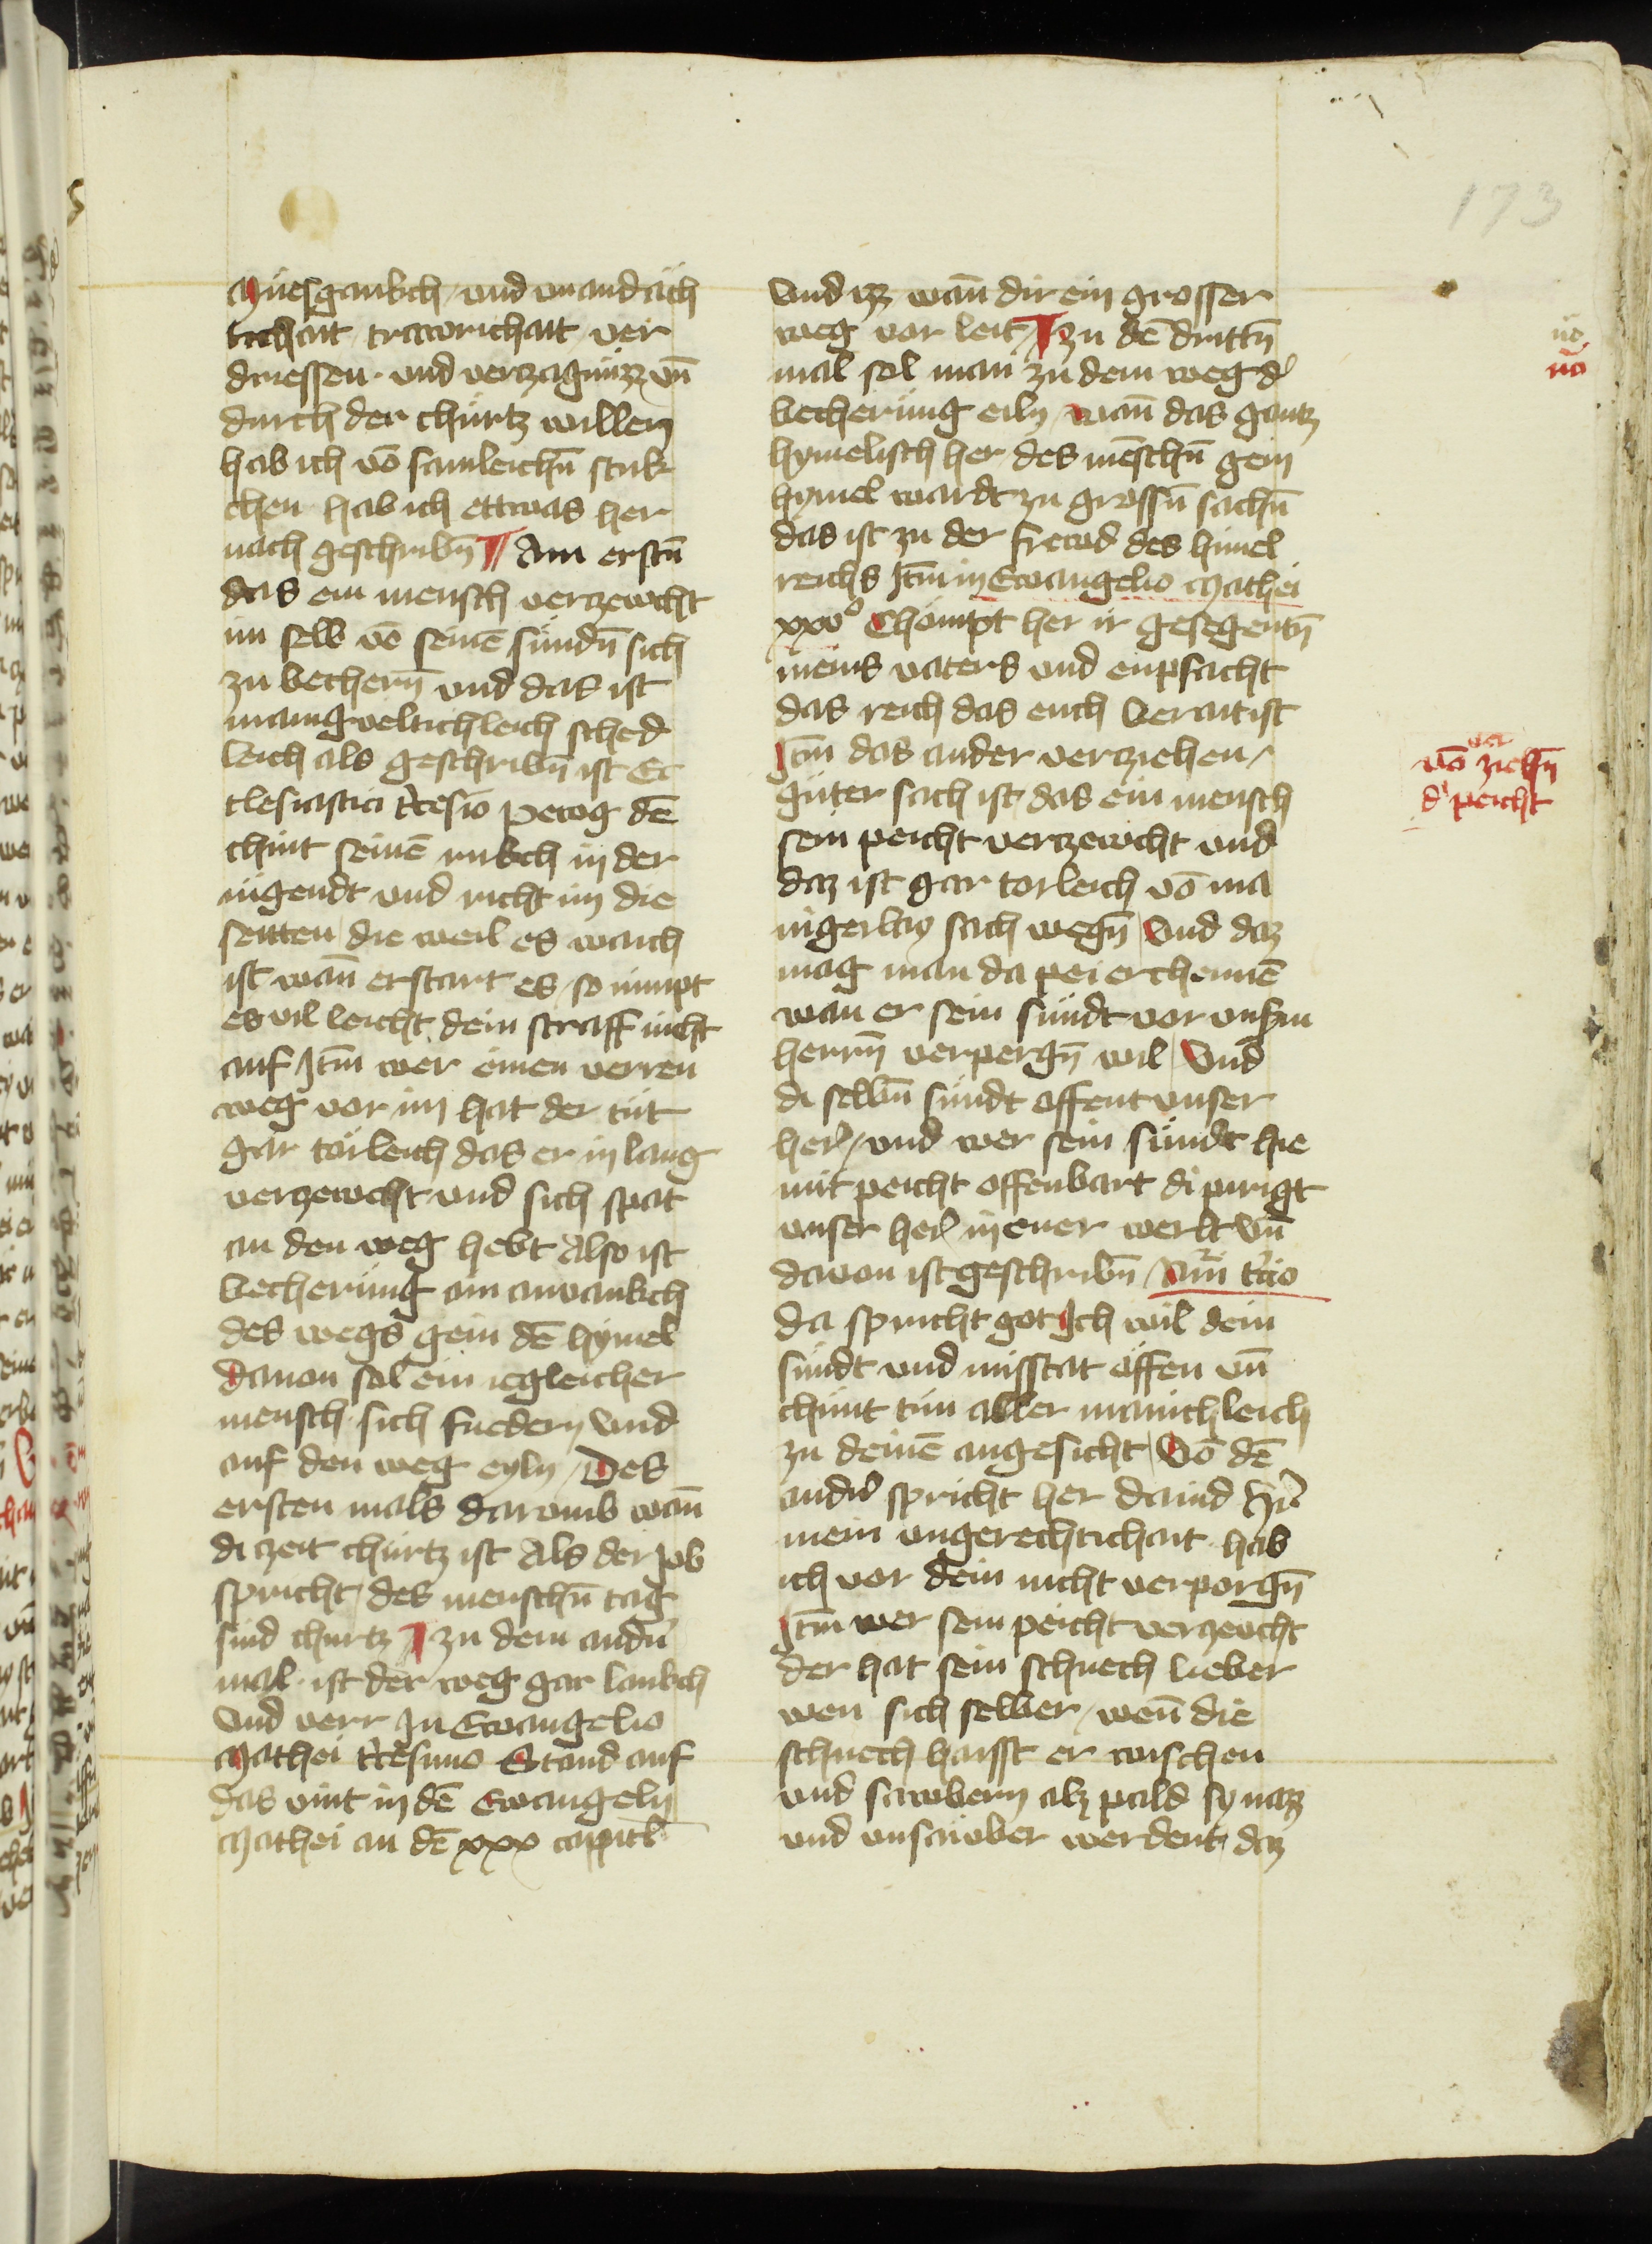 173
Müesgankch / und unandäch
tichait trawrichait ver
driessen und verczagnüzz vn̄
durch der chürtz willen
hab ich vō samleichn̄ stuk
chen hab ich ettwas her
nach geschribn̄ ¶ Am erstn̄
das ein mensch verczewcht
im selb vō seinē sündn̄ sich
zu bechern̄ und das ist
manigveltichleich sched
leich als geschribn̄ ist Ec
clesiastici tͥcesio pewg dē
chint seinē nukch in der
iugendt und richt im die
seitten die weil es waich
ist wan̄ erstart es / so nimpt
es vil leicht dein straff nicht
auf Jtm̄ wer einen verren
weg vor im hat der tüt
gar törleich das er in lang
verczewcht und sich spat
an den weg hebt Also ist
becherüng ain anvankch
des wegs gein dē hymel
dauon sol ein iegleicher
mensch sich fuedern Vnd
auf den weg eyln / Des
ersten mals darumb wan̄
di czeit chürtz ist Als der Job
spricht / des menschn̄ tag
sind churtz ¶ zu dem andn̄
mal ist der weg gar lankch
Vnd verr Jn Ewangelio
Mathei tͥcesimo Stand auf
das vint in dē Ewangelij
Mathei an dē xxx capitl̄
Vnd izz wan̄ dir ein grosser
weg vor leit / ¶ zu dē drittn̄
mal sol man zu dem weg d̕
becherüng eiln / wan̄ das gantz
hymelisch her des mēschn̄ gein
hymel wardt zu grossn̄ sachn̄
das ist zu der frewd des himel
reichs Jtm̄ in Ewangelio Mathei
xxvͦ Chömpt her ir gesegentn̄
meins vaters und enpfacht
das reich das euch berait ist
Jtm̄ das ander verziehen /
güter sach ist / das ein mensch
sein peicht verczewcht und
daz ist gar torleich vō ma
nigerlay sach wegn̄ / Vnd daz
mag man da pei erchennē
wan er sein sündt vor unsm
herrn̄ verpergn̄ wil / Vnd
di selbn̄ sündt offent unser
her̕ / und wer sein sündt hie
mit peicht offenbart di pirigt
unser her̕ in ener werlt Vn̄
dauon ist geschribn̄ / Num̄ tͥcio
da spricht got Ich wil dein
sündt und misstat öffen vn̄
chünt tün aller mänichleich
zu deinē angesicht / Vō dē
andn̄ spricht her dauid H̕re
mein ungerechtichait hab
ich vor dein nicht verporgn̄
Jtm̄ wer sein peicht verzewcht
der hat sein schuech lieber
wen sich selber / wen̄ die
schuech haisst er wischen
und sawbern alz pald sy nazz
und unsauber werdent daz
nō
nō
ver
vō ziehn̄
d̕ peicht